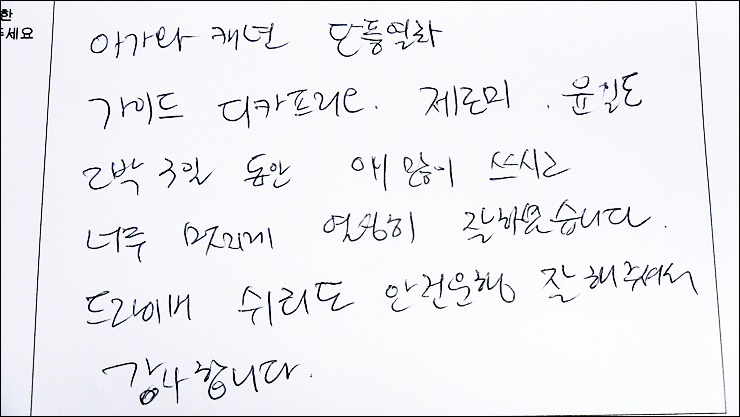 한
주세요
아가와 캐년 단풍열차
가이드 디카프리오. 제로미. 윤길도
2박 3일 동안 애 많이 쓰시고
너무 멋지게 열심히 잘하셨습니다.
드라이버 쉬리도 안전운행 잘 해주셔서
감사합니다.